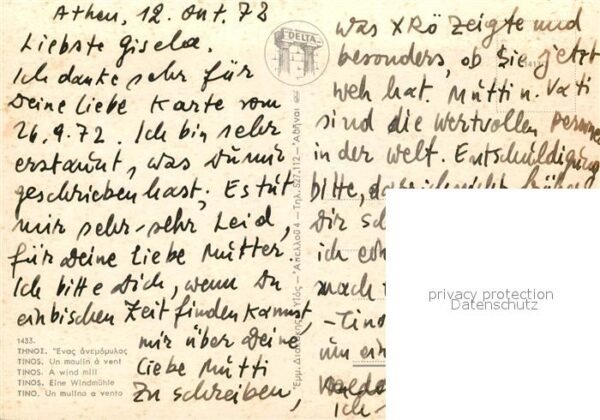 Athen, 12. Okt. 72
Liebste Gisela.
Ich danke sehr für
Deine liebe Karte vom
26.9.72. Ich bin sehr
erstaunt, was Du mir
geschrieben hast; Es tut
mir sehr-sehr Leid,
für Deine liebe Mutter.
Ich bitte Dich, wenn Du
ein bischen Zeit finden kannst,
mir über Deine
liebe Mutti
zu schreiben,
1433.
ΤΗΝΟΣ. Ἕνας ἀνεμόμυλος
TINOS. Un moulin à vent
TINOS. A wind mill
TINOS. Eine Windmühle
TINO. Un mulino a vento
DELTA
Τηλ. 527.112 - Ἀθῆναι
was XRö zeigte und
besonders, ob Sie jetzt
weh hat. Mutti u. Vati
sind die wertvollen
in der Welt. Entschuldigung
bitte, dass ich nicht früher
Dir
ich
nach
-Tino
um ein
Ich-
privacy protection
Datenschutz